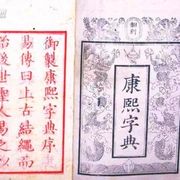 康熙字典
御製康熙字典序
易傳曰上古結繩而
治後世聖人易之以